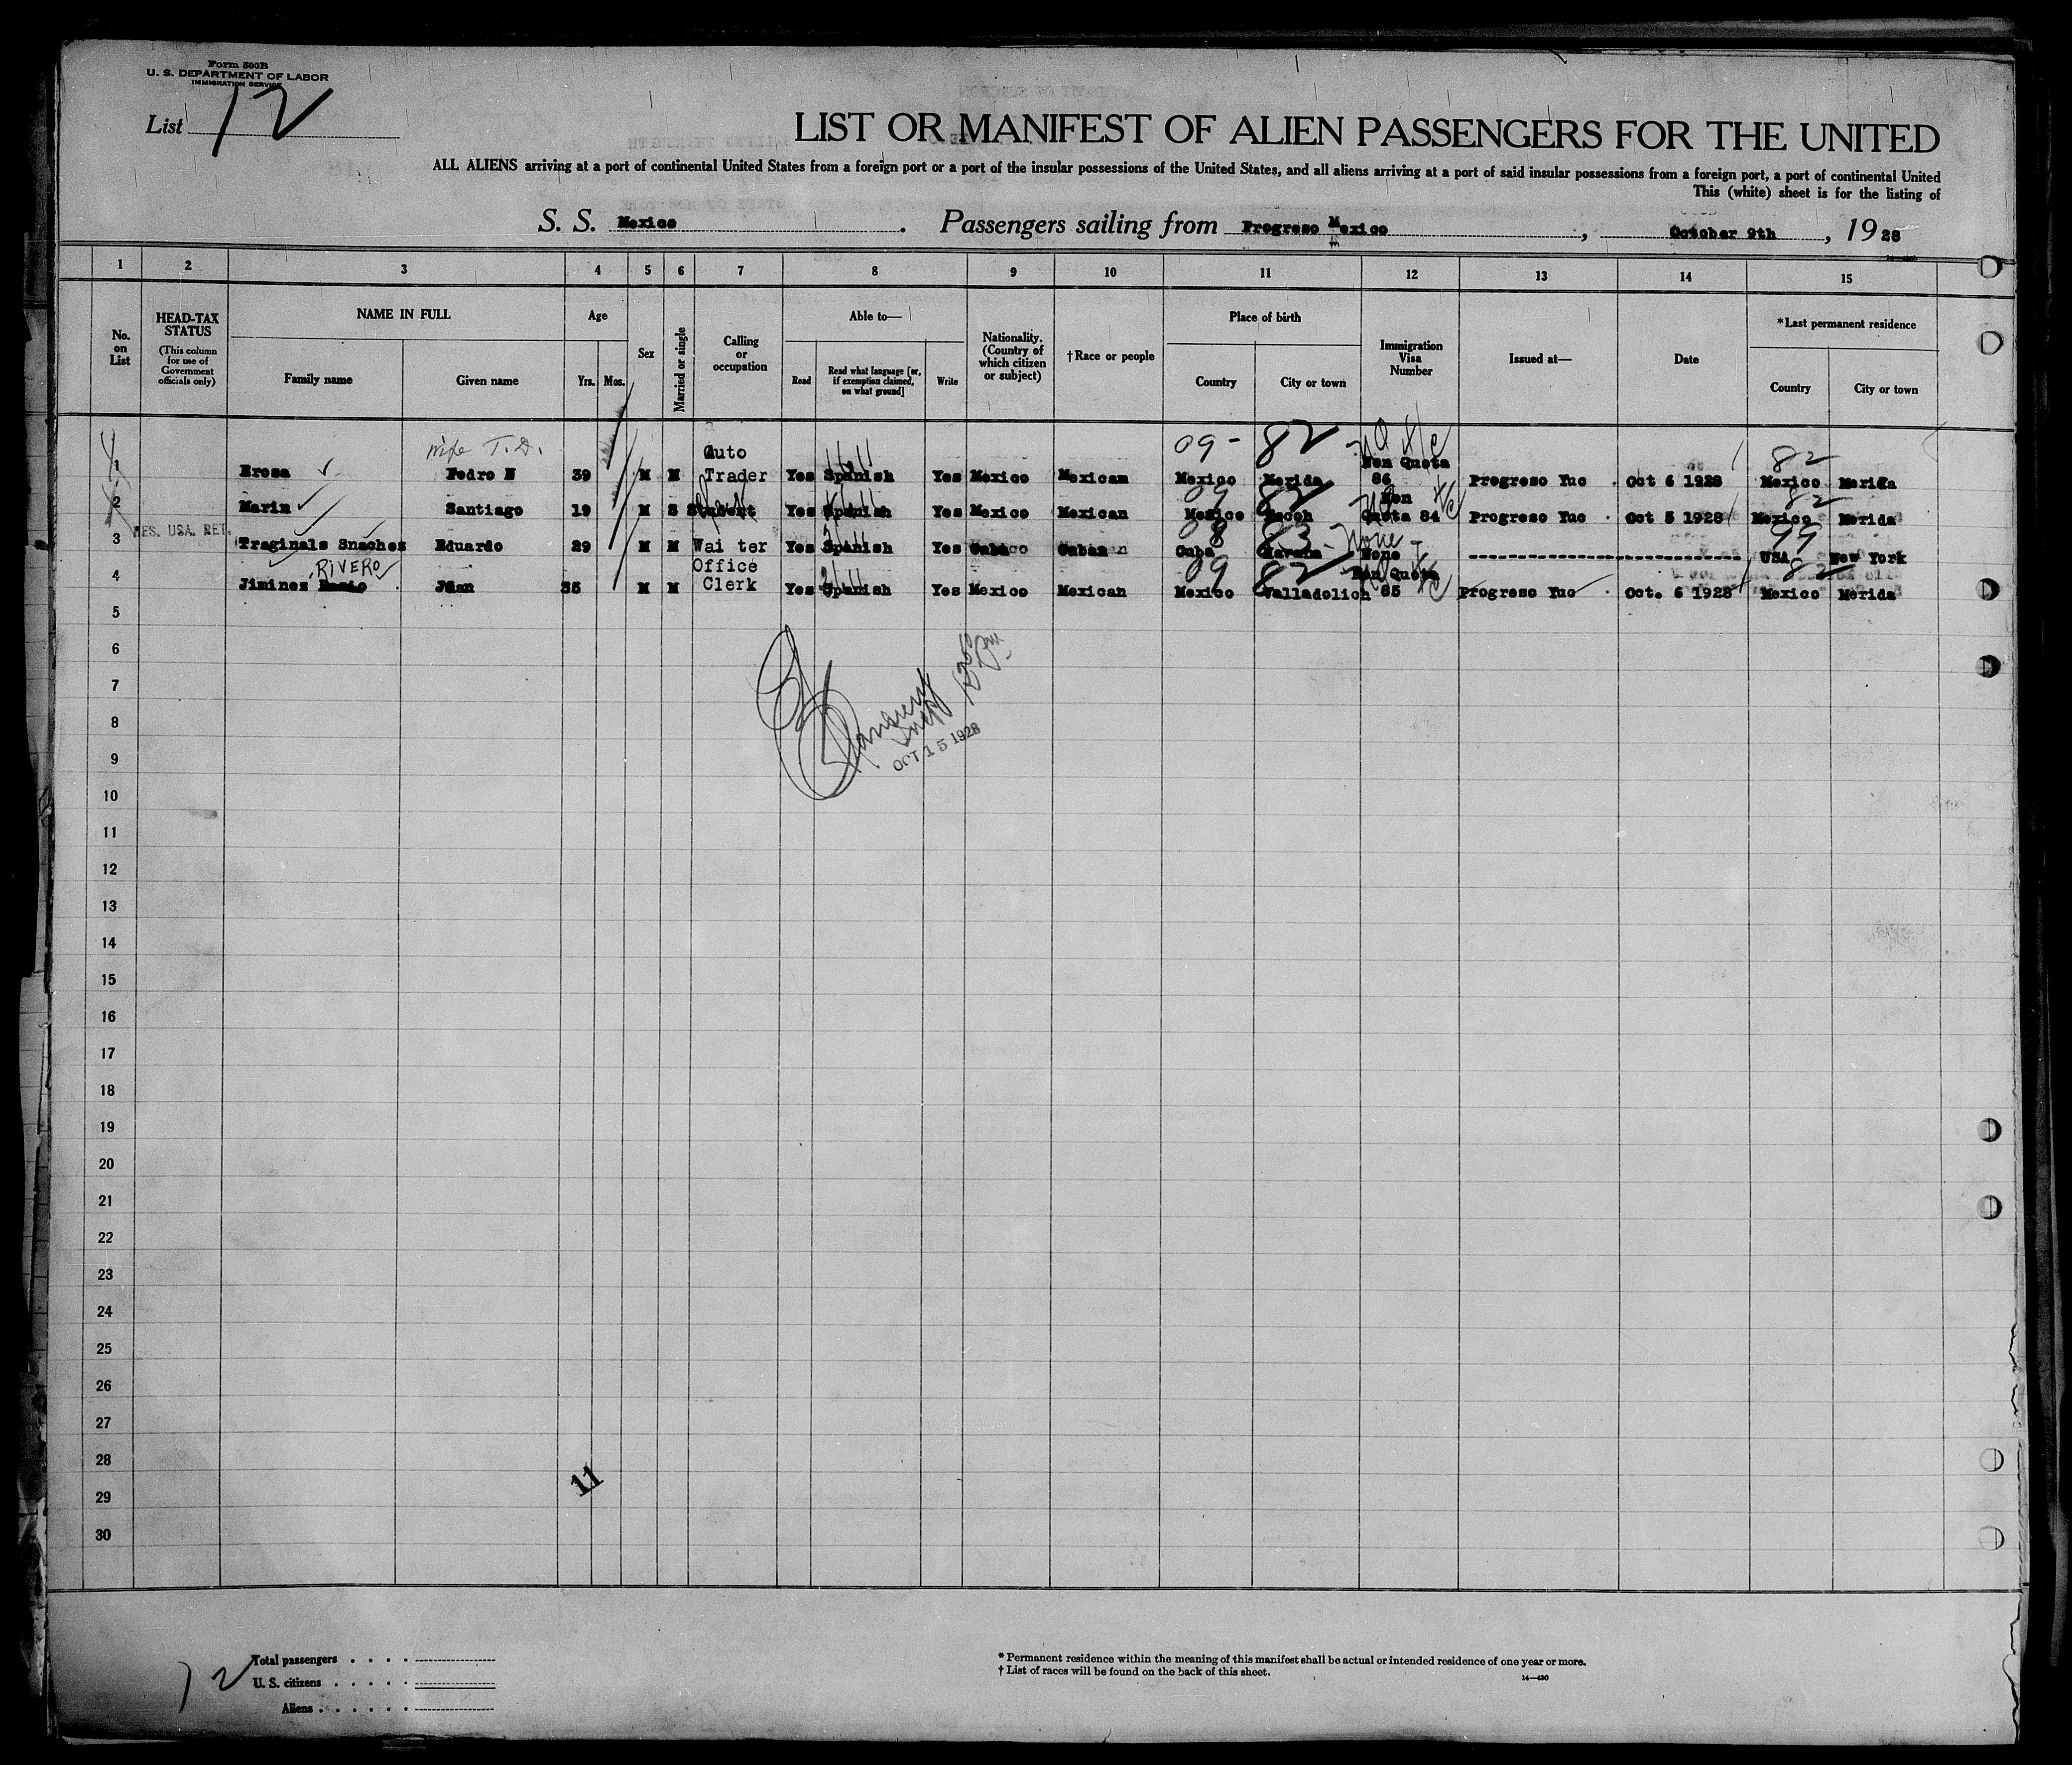 Form 500B
U. S. DEPARTMENT OF LABOR
IMMIGRATION SERVICE
List 12
LIST OR MANIFEST OF ALIEN PASSENGERS FOR THE UNITED
ALL ALIENS arriving at a port of continental United States from a foreign port or a port of the insular possessions of the United States, and all aliens arriving at a port of said insular possessions from a foreign port, a port of continental United
This (white) sheet is for the listing of
S. S. Mexico. Passengers sailing from Progreso Mexico, October 9th, 1928
1 2 3 4 5 6 7 8 9 10 11 12 13 14 15
No. on List
HEAD-TAX STATUS (This column for use of Government officials only)
NAME IN FULL
Family name Given name
Age
Yrs. Mos.
Sex
Married or single
Calling or occupation
Able to—
Read Read what language [or, if exemption claimed, on what ground] Write
Nationality. (Country of which citizen or subject)
†Race or people
Place of birth
Country City or town
Immigration Visa Number
Issued at—
Date
*Last permanent residence
Country City or town
wife T.D. 09- 82 82
1 Erosa Pedro E 39 M M Auto Trader Yes Spanish Yes Mexico Mexican Mexico Merida Non Quota 86 Progreso Yuc Oct 6 1928 Mexico Merida
09 82 82
2 Marin Santiago 19 M S Student Yes Spanish Yes Mexico Mexican Mexico Non Quota 84 Progreso Yuc Oct 5 1928 Mexico Merida
RES. USA. RET. 08 83 None 99
3 Traginals Snachez Eduardo 29 M M Wai ter Yes Spanish Yes Cuba Cuban Cuba Havana None USA New York
RIVERO 09 82 82
4 Jiminez Juan 35 M M Office Clerk Yes Spanish Yes Mexico Mexican Mexico Valladolich Non Quota 85 Progreso Yuc Oct. 6 1928 Mexico Merida
5
6
7
8
OCT 15 1928
9
10
11
12
13
14
15
16
17
18
19
20
21
22
23
24
25
26
27
28
11
29
30
12
Total passengers
U. S. citizens
Aliens
* Permanent residence within the meaning of this manifest shall be actual or intended residence of one year or more.
† List of races will be found on the back of this sheet.
14—430